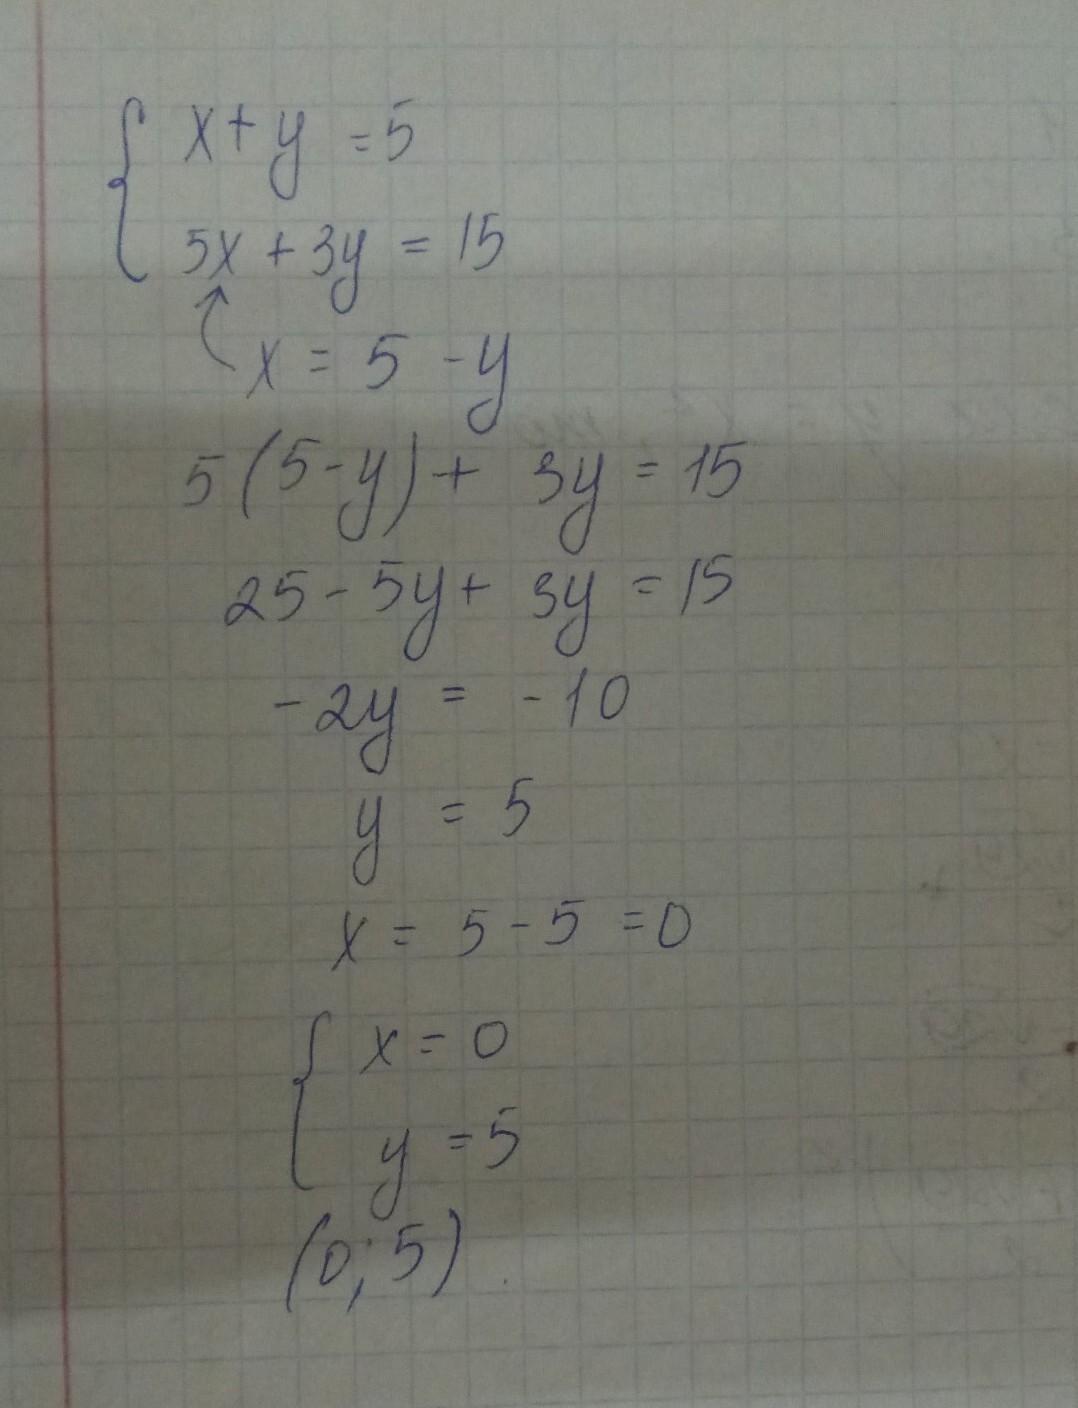 x + y = 5
5x + 3y = 15
x = 5 - y
5(5-y) + 3y = 15
25 - 5y + 3y = 15
-2y = -10
y = 5
x = 5 - 5 = 0
x = 0
y = 5
(0; 5)